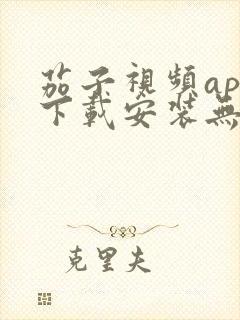 茄子視頻ap
下載安装無
克里夫